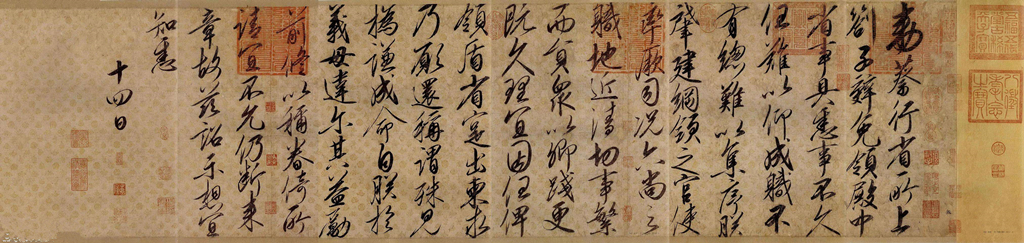 敕蔡行省所上
劄子辭免領殿中
省事具悉事不久
任難以仰成職不
有總難以集序朕
肇建綱領之官使
率厥司況六尚之
職地近清切事繁
而員衆以卿踐更
既久理宜因任俾
領盾省寔出柬求
乃願還稱謂殊見
撝謙成命自朕於
義毋違尔其益勵
前修以稱眷倚所
請宜不允仍斷來
章故茲詔示想宜
知悉
十四日